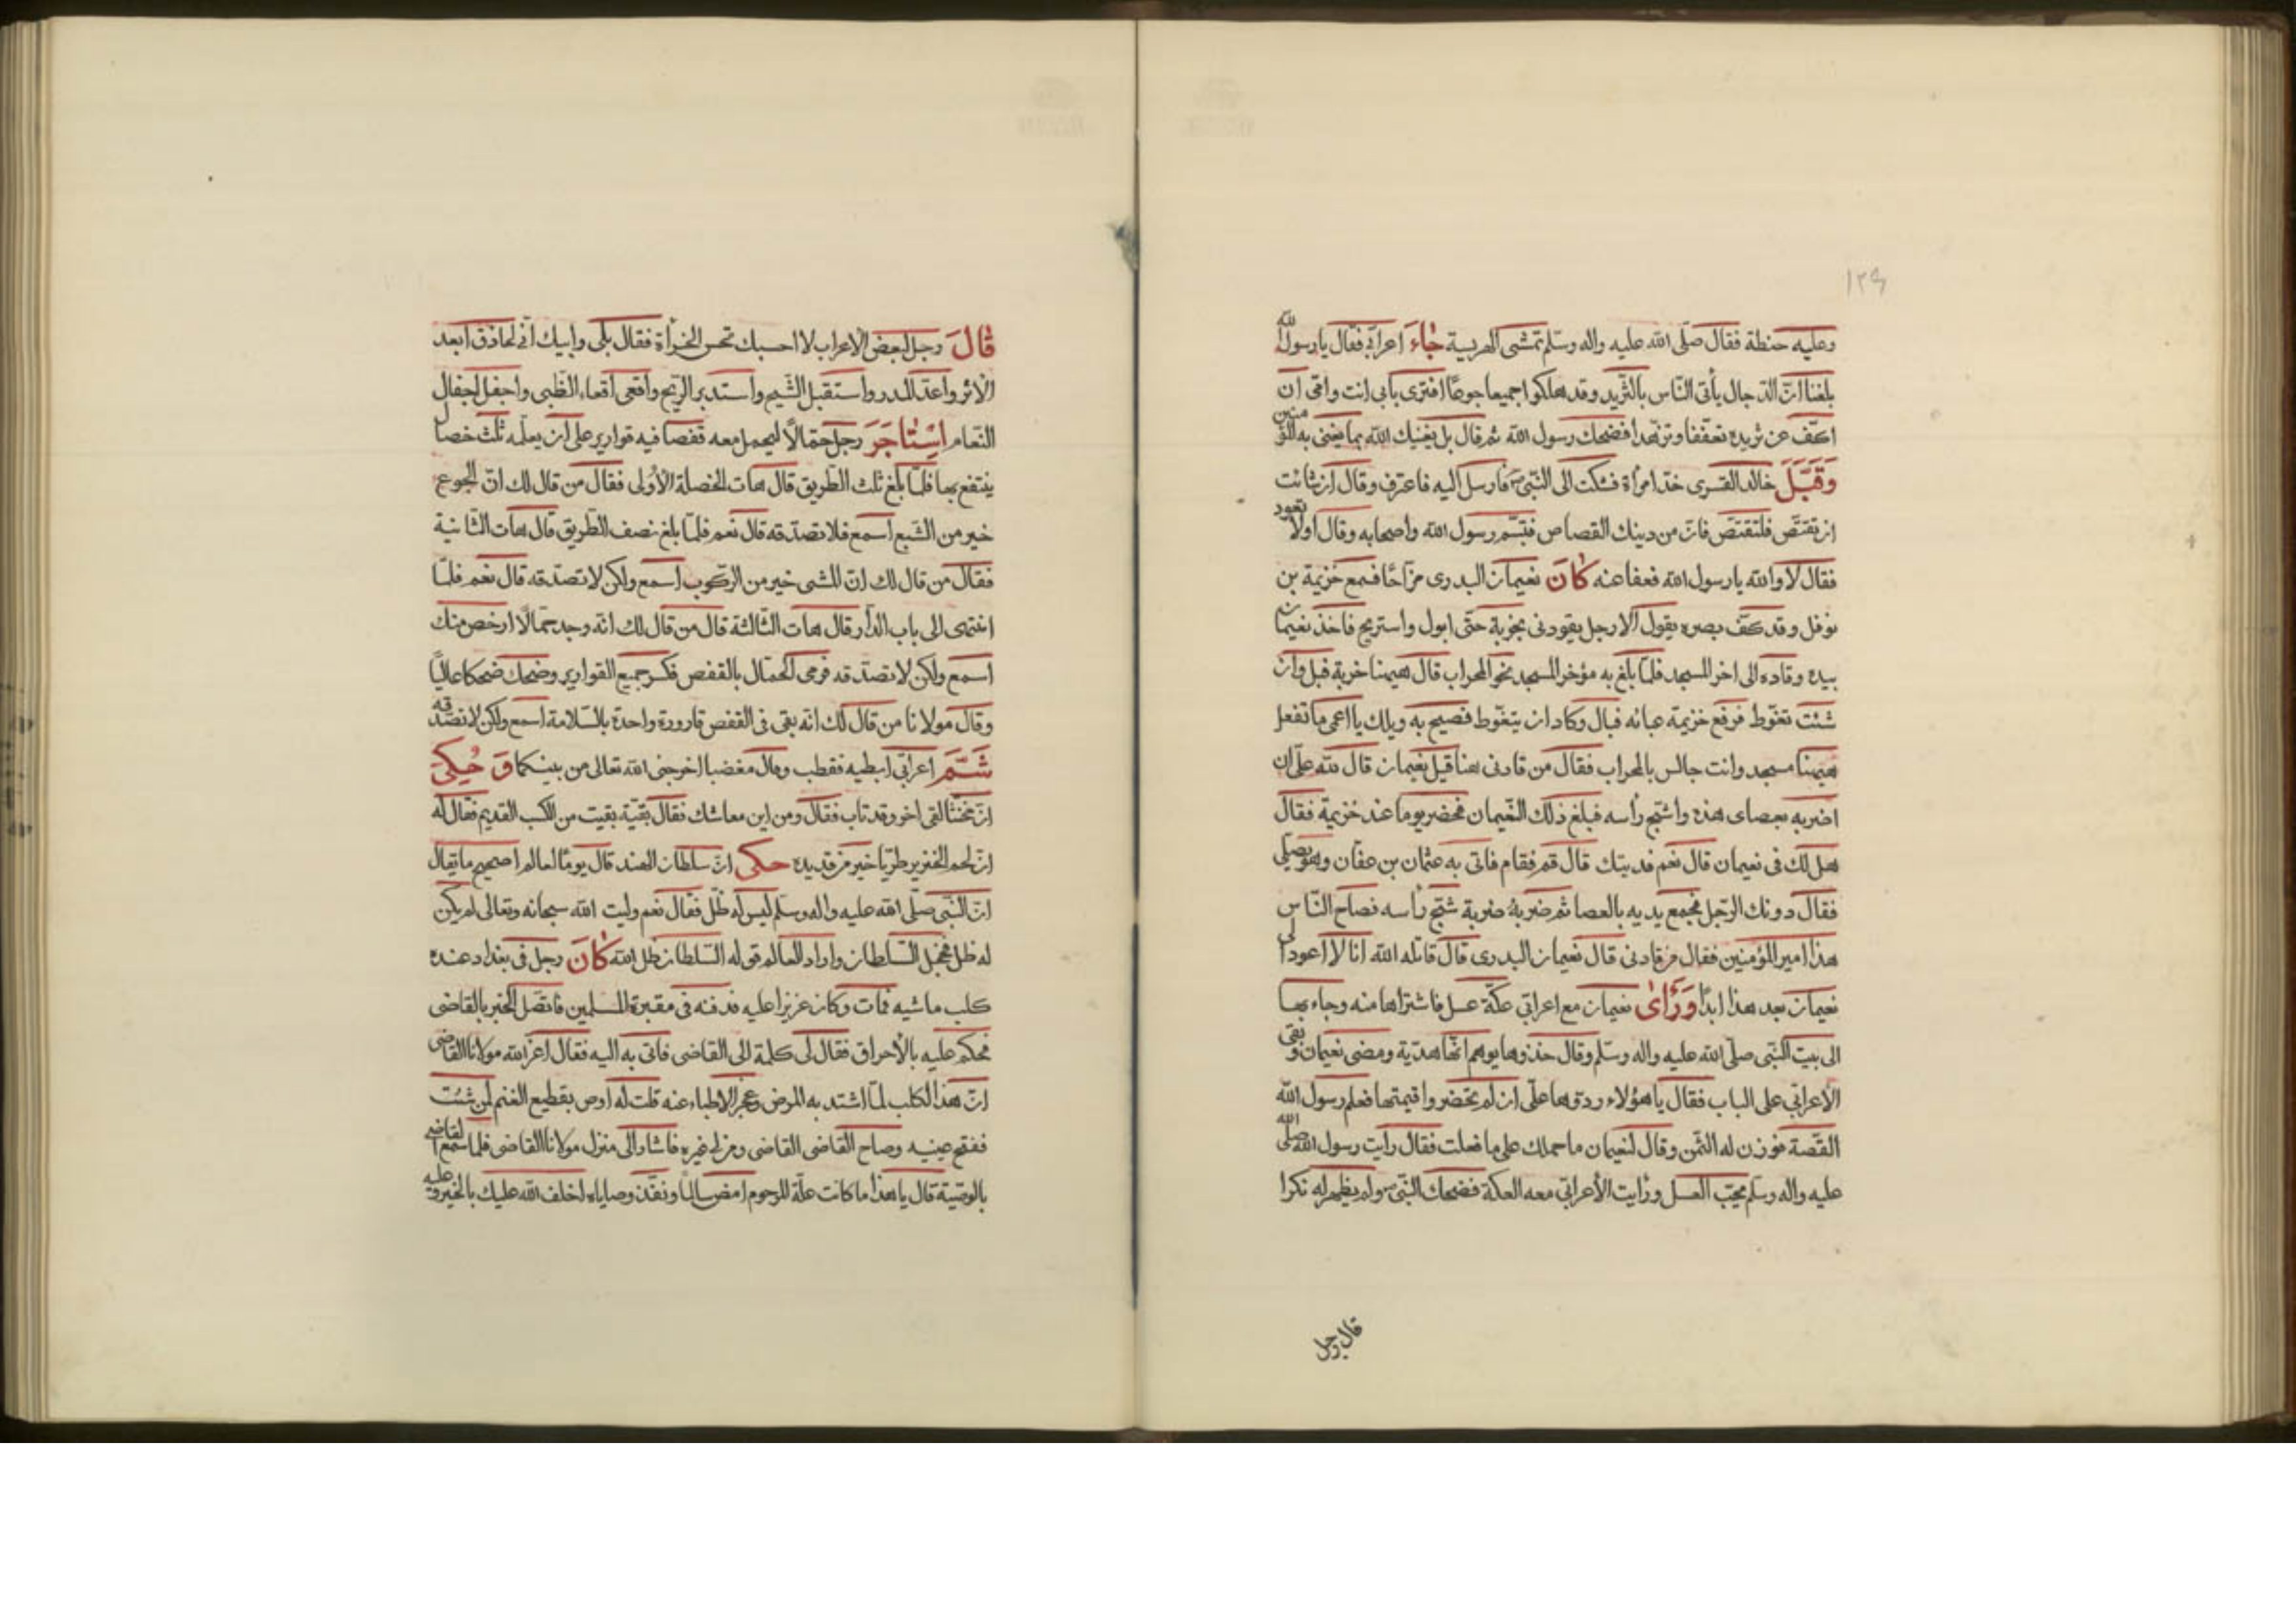 ١٢٩
وعليه حنطة فقال صلّى الله عليه واله وسلّم تمشى الهريسة جَاءَ اعرابّى فقال يا رسول الله
بلغنا انّ الدّجال يأتى النّاس بالثّريد وقد هلكوا جميعا جوعًا افترى بابى انت وامّى ان
اكفّ عن ثريده تعفّفا وتزهّدا فضحك رسول الله ثم قال بل يغنيك الله بما يغنى به المؤمنين
وَقَبَّلَ خالد القسرى خدّ امرأة فشكت الى النّبىّ ص فارسل اليه فاعترف وقال ان شائت
ان تقتصّ فلتقتصّ فانّ من دينك القصاص فتبسّم رسول الله واصحابه وقال اولا تعود
فقال لا والله يا رسول الله فعفا عنه كَانَ نعيمان البدرى مزّاحًا فسمع خزيمة بن
نوفل وقد كفّ بصره يقول الا رجل يقودنى بخربة حتّى ابول واستريح فاخذ نعيمان
بيده وقاده الى اخر المسجد فلمّا بلغ به مؤخر المسجد نحو المحراب قال هيهنا خربة فبل وان
شئت تغوّط فرفع خزيمة عبائه فبال وكاد ان يتغوّط فصيح به ويلك يا اعمى ما تفعل
هيهنا مسجد وانت جالس بالمحراب فقال من قادنى هنا قيل نعيمان قال لله علىّ ان
اضربه بعصاى هذه واشجّ رأسه فبلغ ذلك النّعيمان فحضر يوما عند خزيمة فقال
هل لك فى نعيمان قال نعم فديتك قال قم فقام فاتى به عثمان بن عفّان وهو يصلّى
فقال دونك الرّجل فجمع يديه بالعصا ثم ضربه ضربة شجّ رأسه فصاح النّاس
هذا امير المؤمنين فقال من قادنى قال نعيمان البدرى قال قاتله الله انا لا اعود الى
نعيمان بعد هذا ابدًا وَرَأىٰ نعيمان مع اعرابّى عكّة عسل فاشتراها منه وجاء بها
الى بيت النّبى صلّى الله عليه واله وسلّم وقال خذوها يوهم انّها هديّة ومضى نعيمان وبقى
الأعرابّى على الباب فقال يا هؤلاء ردّوها علىّ ان لم تحضروا قيمتها فعلم رسول الله
القصّة فوزن له الثّمن وقال لنعيمان ما حملك على ما فعلت فقال رأيت رسول الله صلّى الله
عليه واله وسلّم يحبّ العسل ورأيت الأعرابّى معه العكة فضحك النّبىّ ص ولم يظهر له نكرا
قال رجل
قَالَ رجل لبعض الأعراب لا احسبك تحسن الخرأة فقال بلى وابيك انّى لحاذق ابعد
الأثر واعدّ المدر واستقبل الشّيح واستدبر الرّيح واقعى اقعاء الظّبى واجفل اجفال
النّعام اِسْتَاجَرَ رجل حمّالًا ليحمل معه قفصا فيه قوارير على ان يعلّمه ثلث خصال
ينتفع بها فلمّا بلغ ثلث الطّريق قال هات الخصلة الأولى فقال من قال لك انّ الجوع
خير من الشّبع اسمع فلا تصدّقه قال نعم فلمّا بلغ نصف الطّريق قال هات الثّانية
فقال من قال لك انّ المشى خير من الرّكوب اسمع ولكن لا تصدّقه قال نعم فلمّا
انتهى الى باب الدّار قال هات الثّالثة قال من قال لك انّه وجد حمّالًا ارخص منك
اسمع ولكن لا تصدّقه فرمى الحمّال بالقفص فكسر جميع القوارير وضحك ضحكا عاليًا
وقال مولانا من قال لك انّه بقى فى القفص قارورة واحدة بالسّلامة اسمع ولكن لا تصدّقه
شَمَّ اعرابّى ابطيه فقطب وقال مغضبا اخرجنى الله تعالى من بينكما وَ حُكِىَ
انّ مخنّثا لقى اخر وقد تاب فقال ومن اين معاشك فقال بقيّة بقيت من الكسب القديم فقال له
انّ لحم الخنزير طريّا خير من قديده حكى انّ سلطان الهند قال يومًا لعالم اصحيح ما يقال
انّ النّبّى صلّى الله عليه واله وسلّم ليس له ظلّ فقال نعم وليت الله سبحانه وتعالى لم يكن
له ظل فخجل السّلطان واراد العالم قوله السّلطان ظل الله كَانَ رجل فى بغداد عنده
كلب ماشيه فمات وكان عزيزا عليه فدفنه فى مقبرة المسلمين فاتصّل الخبر بالقاضى
فحكم عليه بالأحراق فقال لى كلمة الى القاضى فاتى به اليه فقال اعزّ الله مولانا القاضى
انّ هذا الكلب لمّا اشتد به المرض وعجز الاطباء عنه قلت له اوص بقطيع الغنم لمن شئت
ففتح عينيه وصاح القاضى القاضى ومن لى غيره فاشار الى منزل مولانا القاضى فلما سمع القاضى
بالوصيّة قال يا هذا ما كانت علّة المرحوم امض سالمًا ونفّذ وصاياه اخلف الله عليك بالخير وعليه